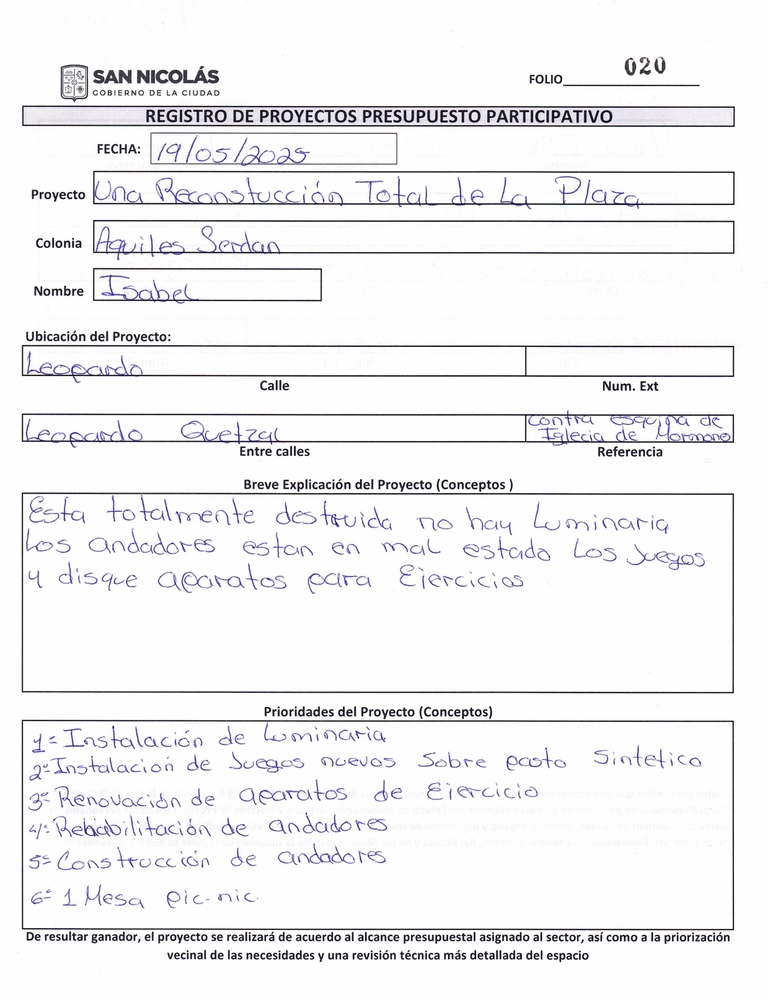 SAN NICOLÁS
GOBIERNO DE LA CIUDAD
FOLIO 020
REGISTRO DE PROYECTOS PRESUPUESTO PARTICIPATIVO
FECHA: 19/05/2025
Proyecto Una Reconstucción Total de La Plaza
Colonia Aquiles Serdan
Nombre Isabel
Ubicación del Proyecto:
Leopardo
Calle Num. Ext
Leopardo Quetzal contra esquina de Iglecia de Mormone
Entre calles Referencia
Breve Explicación del Proyecto (Conceptos )
Esta totalmente destruida no hay Luminaria
Los andadores estan en mal estado Los Juegos
y disque aparatos para Ejercicios
Prioridades del Proyecto (Conceptos)
1= Instalación de Luminaria
2= Instalacion de Juegos nuevos Sobre pasto Sintetico
3= Renovación de aparatos de Ejercicio
4= Rehabilitación de andadores
5= Construcción de andadores
6= 1 Mesa pic-nic.
De resultar ganador, el proyecto se realizará de acuerdo al alcance presupuestal asignado al sector, así como a la priorización
vecinal de las necesidades y una revisión técnica más detallada del espacio